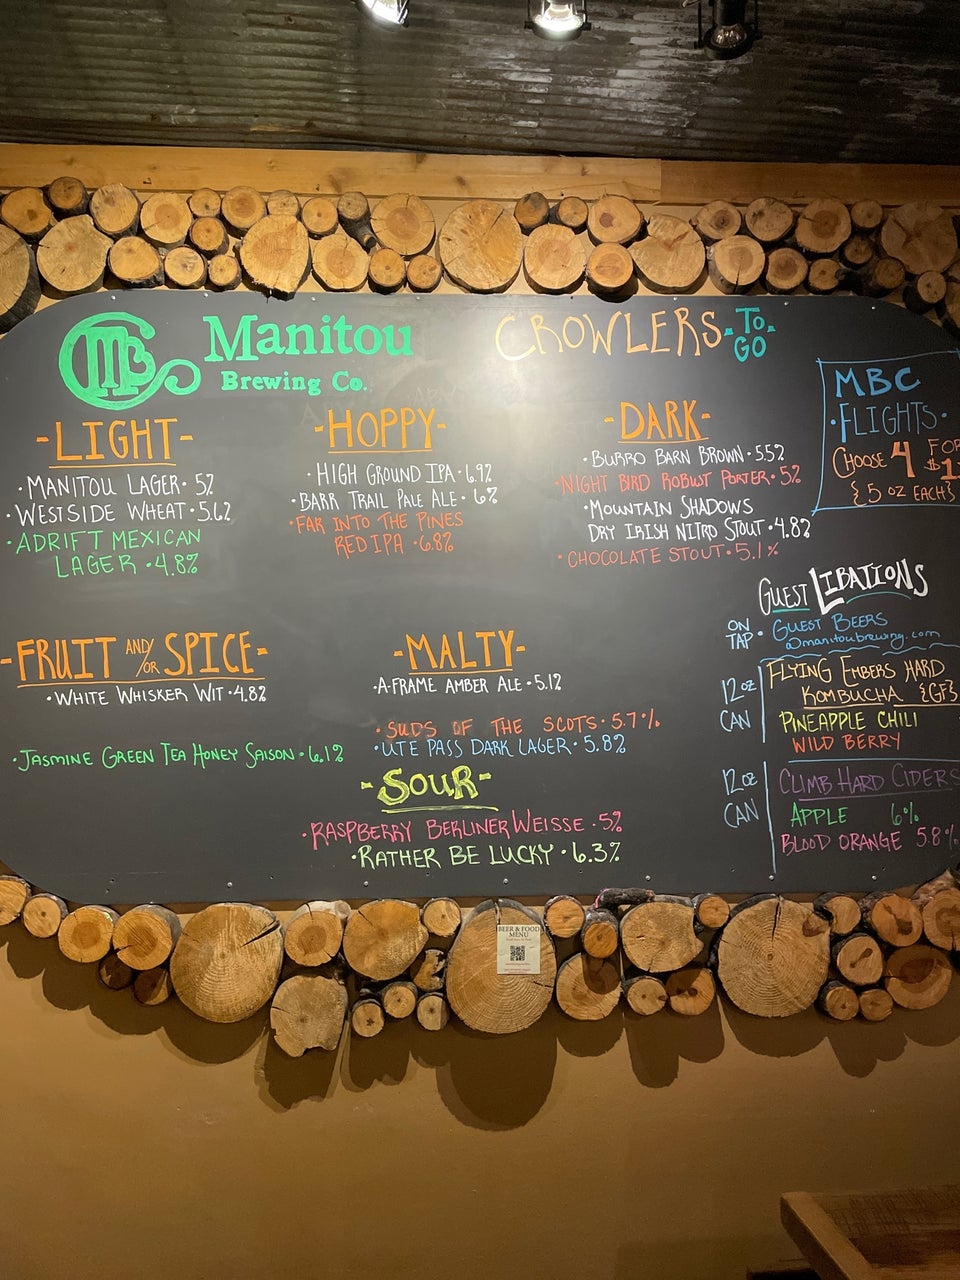 Manitou
Brewing Co.
CROWLERS TO GO
-LIGHT-
· MANITOU LAGER · 5%
· WESTSIDE WHEAT · 5.6%
· ADRIFT MEXICAN
LAGER · 4.8%
-HOPPY-
· HIGH GROUND IPA · 6.9%
· BARR TRAIL PALE ALE · 6%
· FAR INTO THE PINES
RED IPA · 6.8%
-DARK-
· BURRO BARN BROWN · 5.5%
· NIGHT BIRD ROBUST PORTER · 5%
· MOUNTAIN SHADOWS
DRY IRISH NITRO STOUT · 4.8%
· CHOCOLATE STOUT · 5.1%
MBC
· FLIGHTS ·
CHOOSE 4 FOR
{5 OZ EACH}
-FRUIT AND/OR SPICE-
· WHITE WHISKER WIT · 4.8%
· JASMINE GREEN TEA HONEY SAISON · 6.1%
-MALTY-
· A-FRAME AMBER ALE · 5.1%
· SUDS OF THE SCOTS · 5.7%
· UTE PASS DARK LAGER · 5.8%
-SOUR-
· RASPBERRY BERLINER WEISSE · 5%
· RATHER BE LUCKY · 6.3%
GUEST LIBATIONS
ON TAP · GUEST BEERS
@manitoubrewing.com
12 OZ CAN
FLYING EMBERS HARD
KOMBUCHA {GF}
PINEAPPLE CHILI
WILD BERRY
12 OZ CAN
CLIMB HARD CIDERS
APPLE 6%
BLOOD ORANGE 5.8%
BEER & FOOD
MENU